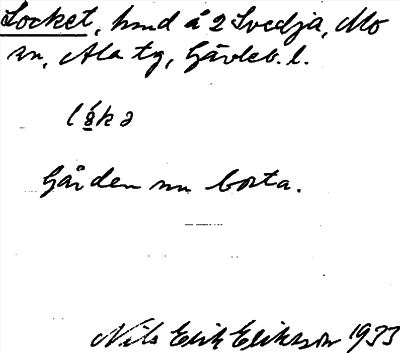 Locket, hmd å 2 Svedja, Mo
sn, Ala tg, Gävleb. l.
Gården nu borta.
Nils Erik Eriksson 1933